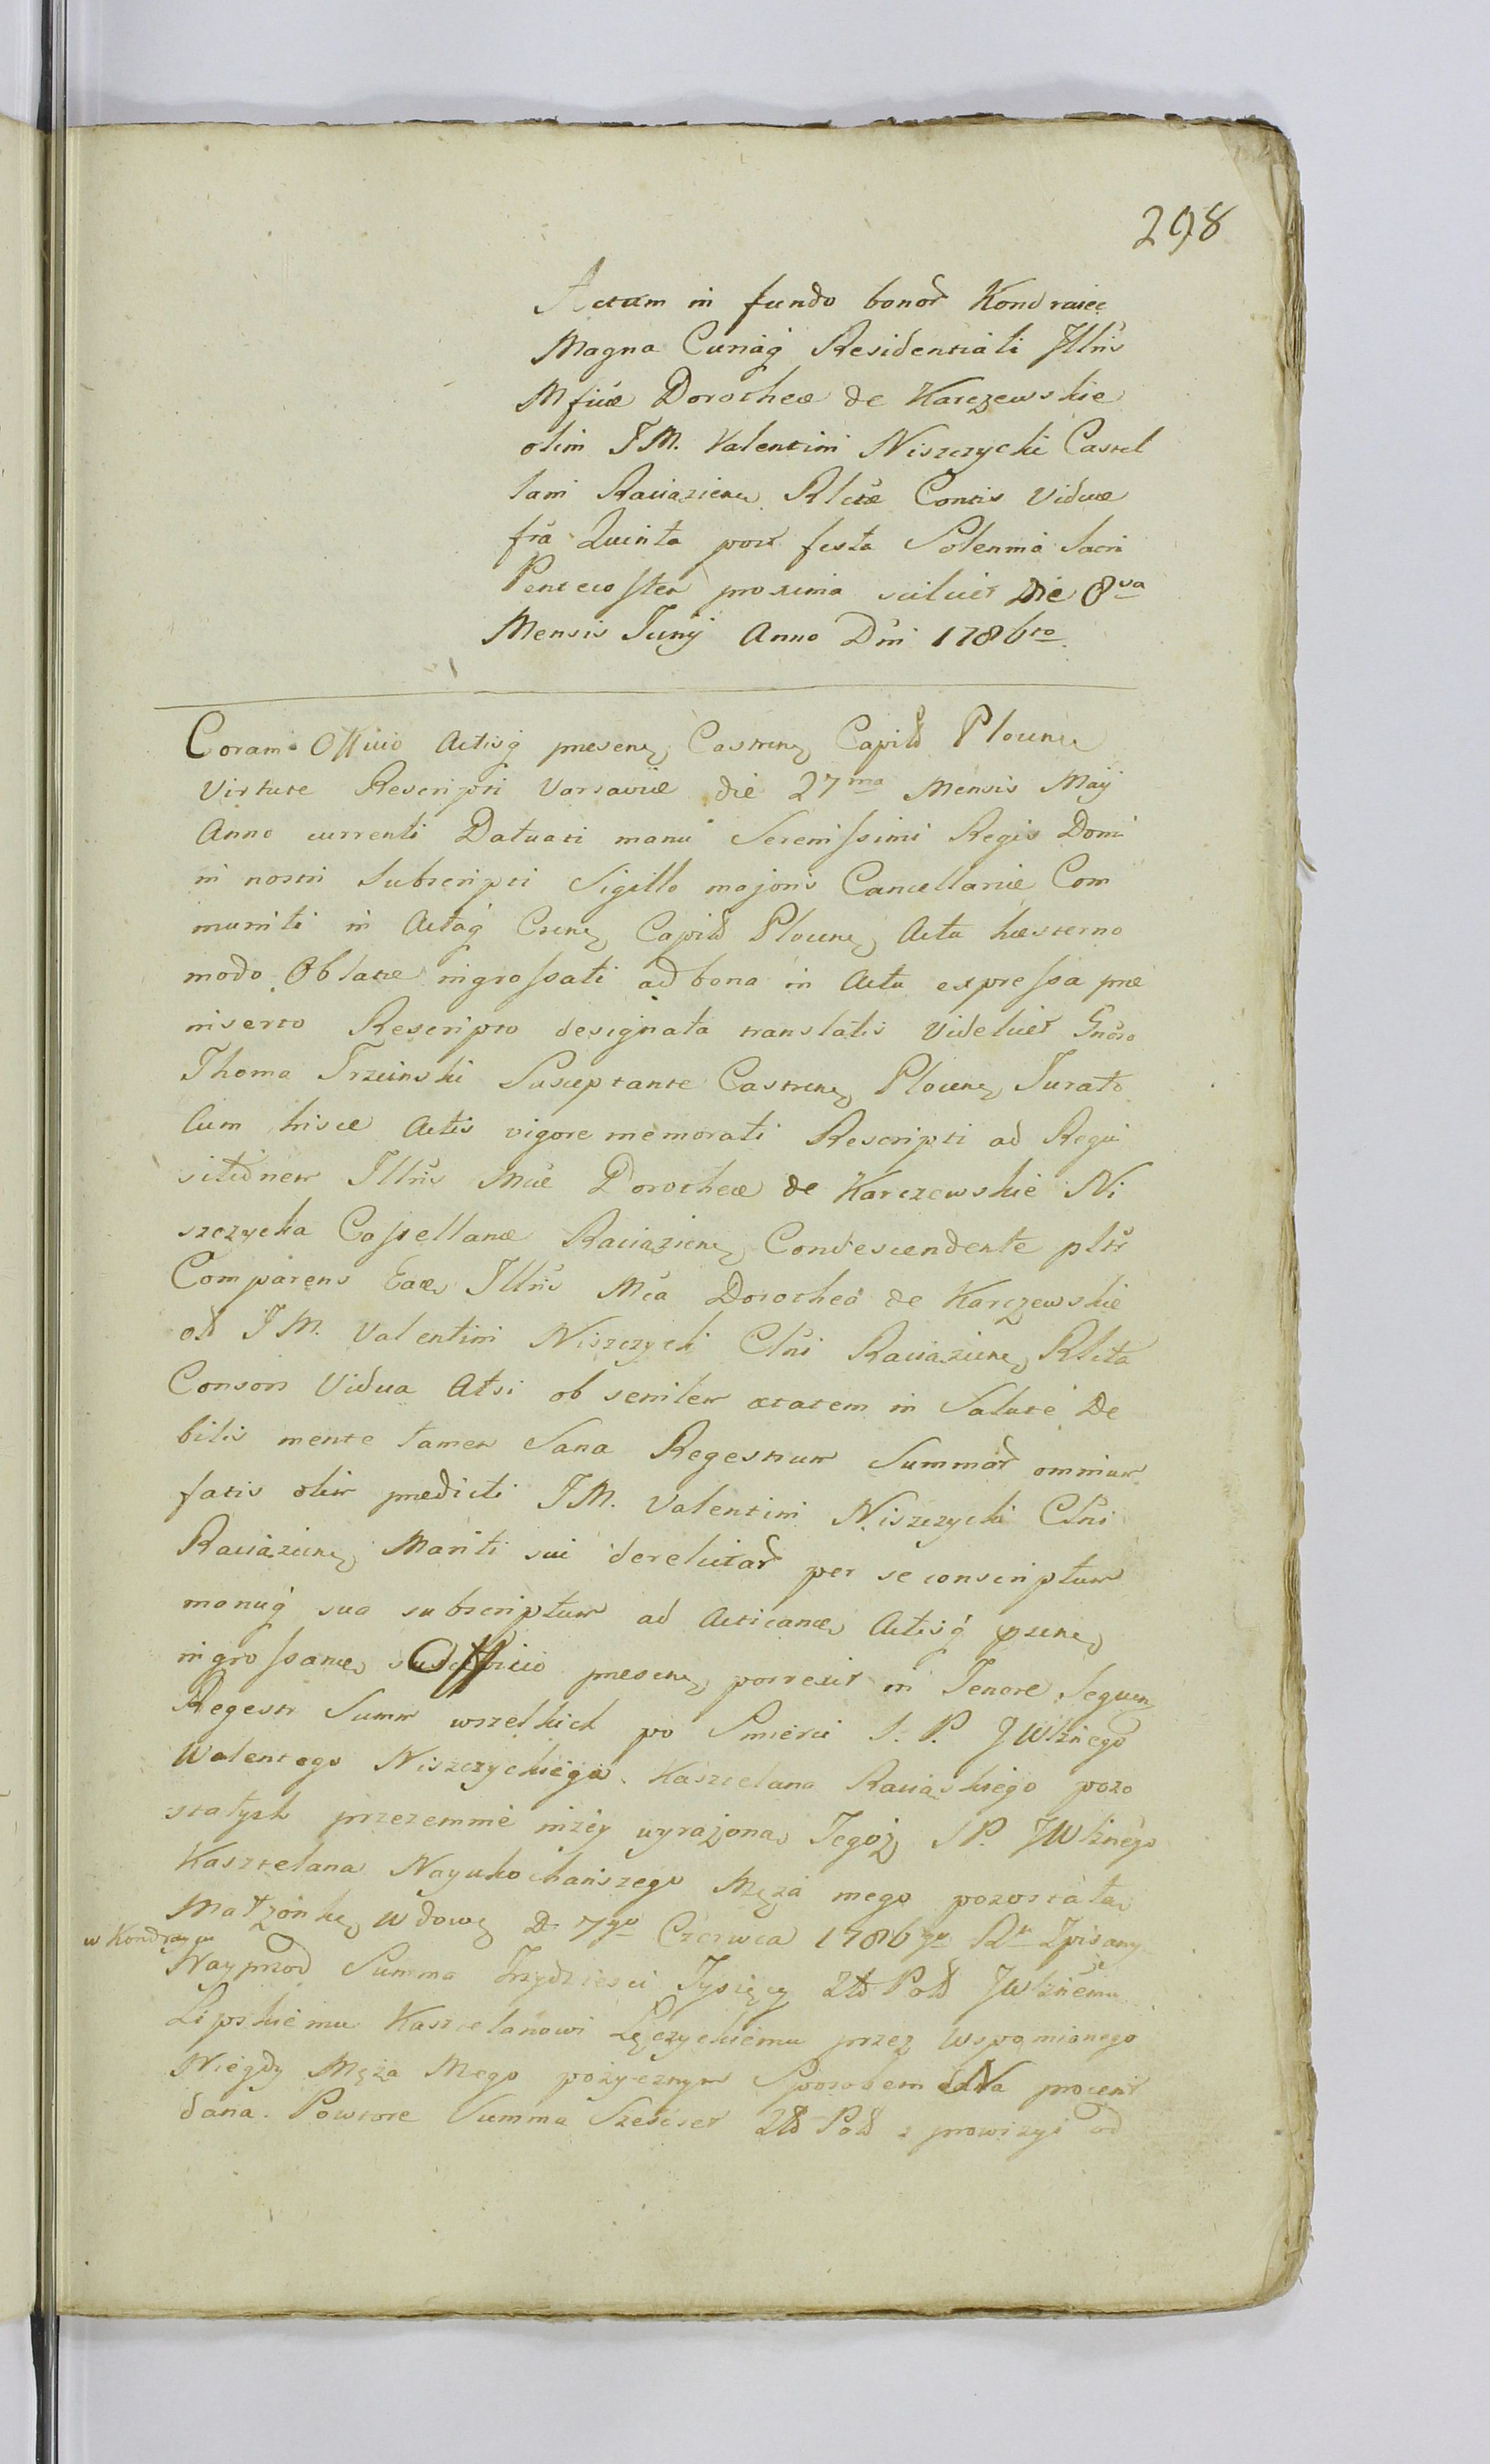 298
Actum in fundo bonor Kondraiec
Magna Curiaq Residentiali Illris
Mficæ Dorotheæ de Karczewskie
olim I M. Valentini Niszczycki Castel
lani Raciązienę Rlctæ Contis Viduæ
fra Quinta post festa Solennia Sacri
Pentecosten proxima scilicet Die 8va
Mensis Junij Anno Dni 1786to.
Coram Officio Actisq presenę Castrenę Capitł Plocenę
Virtute Rescripti Varsaviæ die 27ma Mensis Maij
Anno currenti Datuati manu Serenissimi Regis Domi
ni nostri Subscripti Sigillo majoris Cancellariæ Com
muniti in Actaq Csenę Capitł Plocenę Actu hæsterno
modo Oblatæ ingrossati ad bona in Actu expressa præ
inserto Rescripto designata translatis Videlicet Gnoso
Thoma Trzcinski Susceptante Castrenę Plocenę Jurato
Cum hisce Actis vigore memorati Rescripti ad Requi
sitionem Illris Mcæ Dorotheæ de Karczewskie Ni
szczycka Castellanæ Raciązienę Condescendente pltr
Comparens Eadę Illris Mca Dorothea de Karczewskie
olł I M. Valentini Niszczycki Clni Raciązienę Rlcta
Consors Vidua Atsi ob senilem ætatem in Salute De
bilis mente tamen Sana Regestrum Summar omnium
fatis olim prædicti I M. Valentini Niszczycki Clni
Raciązienę Mariti sui derelictar per se conscriptum
manuq sua subscriptum ad Acticandę Actisq psenę
ingrossandę Officio presenę porrexit in Tenore Sequenę
Regestr Summ wszelkich po Smierci S. P. JWlznego
Walentego Niszczyckiego Kasztelana Raciąskiego pozo
stałych przezemnie niżey wyrażoną Tegoż S P. JWlznego
Kasztelana Nayukochańszego Męża mego pozostałą
Małżonkę Wdowę D 7go Czerwca 1786go Rk Spisany
w Kondraycu
Nayprzod Summa Trzydziesci Tysięcy Złł Polł JWlznemu
Lipskiemu Kasztelanowi Łęczyckiemu przez Wspomianego
Niegdy Męża Mego pożycznym Sposobem Na procent
dana. Powtore Summa Szescset Złł Polł z prowizyi od